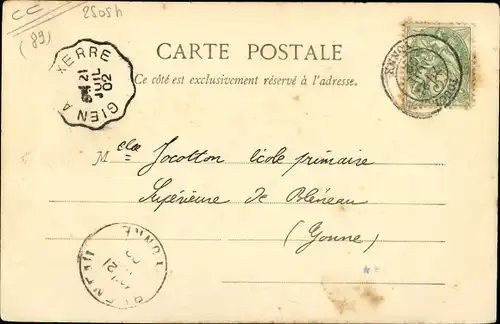 CC
2505h
(89)
CARTE POSTALE
Ce côté est exclusivement réservé à l'adresse.
GIEN A AUXERRE
21
JUIL
02
YONNE
Melle Jocotton école primaire
Supérieure de Bléneau
(Yonne)
BLENEAU
21
YONNE